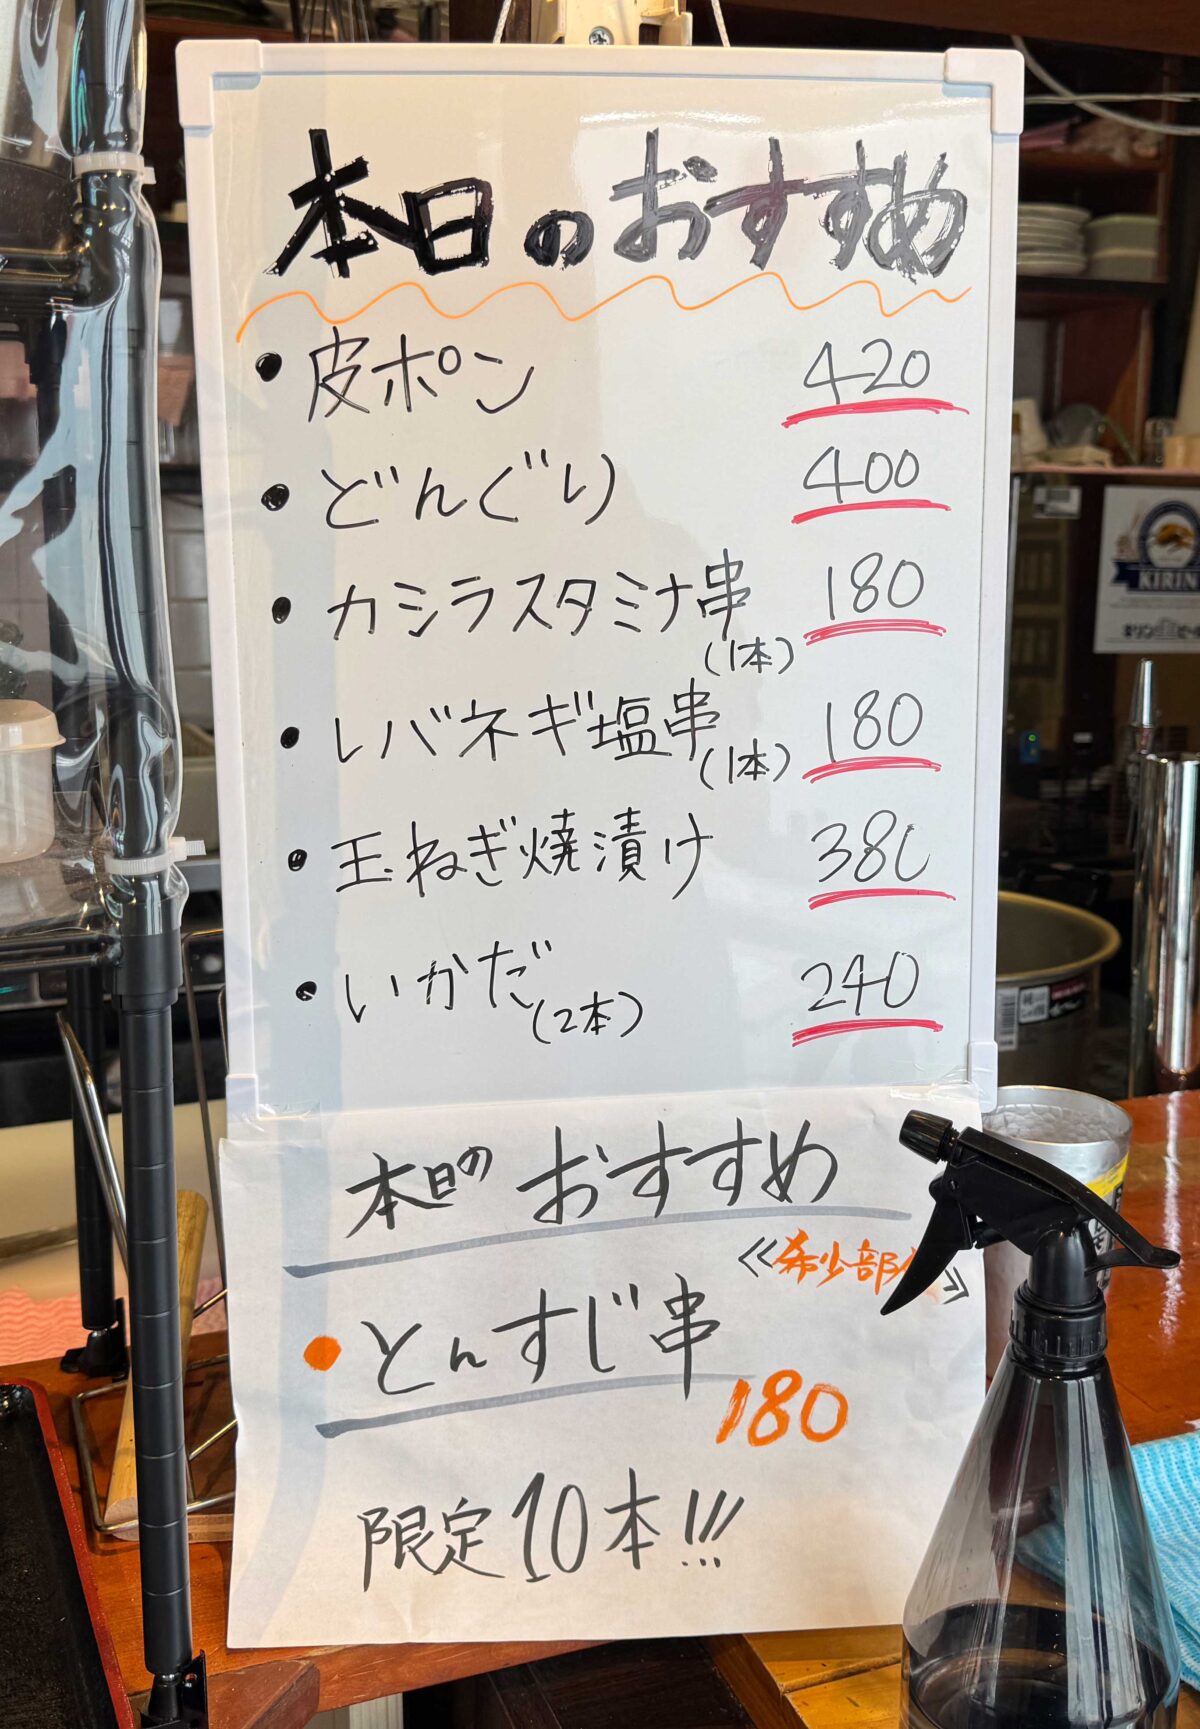 本日のおすすめ
・皮ポン 420
・どんぐり 400
・カシラスタミナ串(1本) 180
・レバネギ塩串(1本) 180
・玉ねぎ焼漬け 380
・いかだ(2本) 240
本日のおすすめ
≪希少部
・とんすじ串
180
限定10本!!!
KIRIN